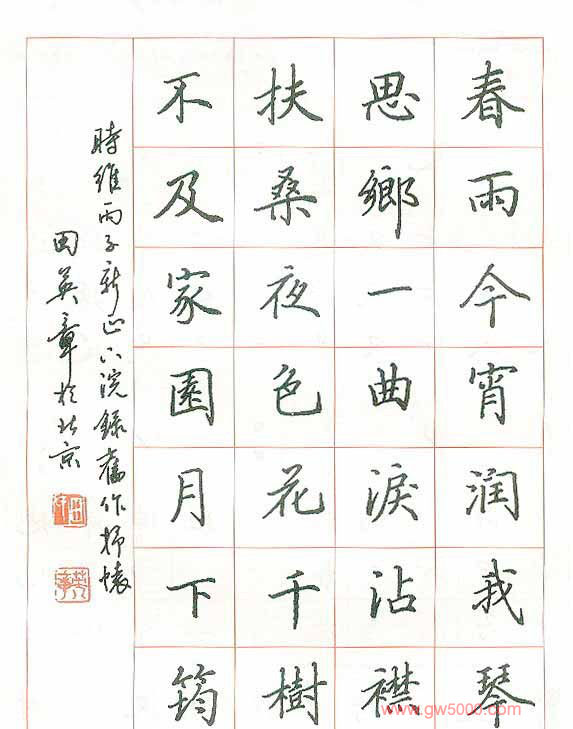 春雨今宵润我琴
思鄉一曲淚沾襟
扶桑夜色花千樹
不及家園月下筠
時維丙子新正
錄舊作抒懷
田英章於北京
www.gw5000.com